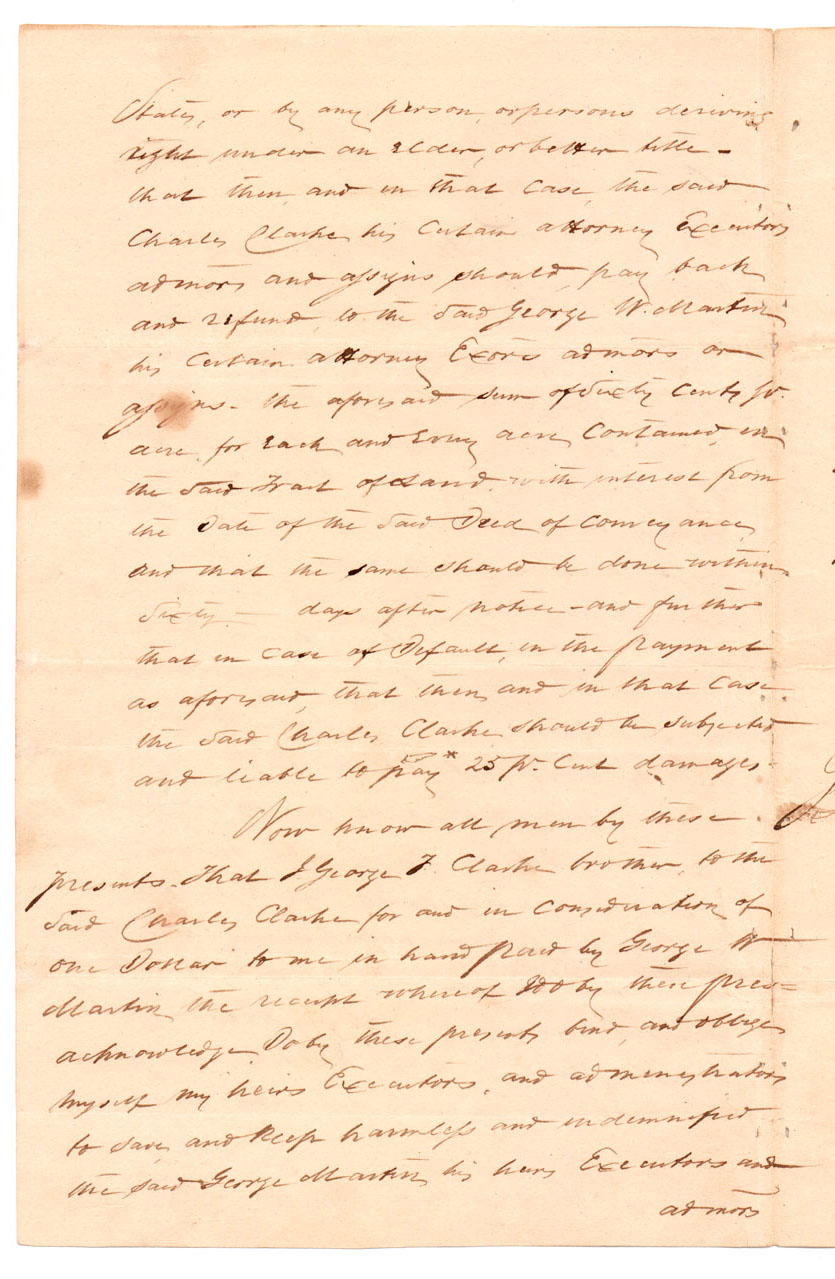 States, or by any person, or persons deriving
right under an Elder, or better title -
that then, and in that Case, the said
Charles Clarke his Certain attorney Executors
admors and assigns should, pay back
and refund, to the Said George W. Martin
his Certain attorney Exors admors or
assigns - the aforesaid sum of Sixty Cents pr.
acre, for Each and Every acre Contained, in
the Said Tract of Land, with interest from
the Date of the Said Deed of Conveyance,
and that the same should be done within
Sixty - days after notice - and further
that in case of Default, in the payment
as aforesaid, that then, and in that Case
the Said Charles Clarke should be subjected
and liable to pay * 25 pr. Cent damages -
Now know all men by these
presents. That I George F. Clarke brother, to the
Said Charles Clarke for and in Consideration of
one Dollar to me in hand paid by George W
Martin, the receipt whereof I do by these pres=
acknowledge, Do by these presents bind, and oblige
myself my heirs Executors, and administrators
to save, and keep harmless and indemnified
the said George Martin, his heirs Executors and
admors